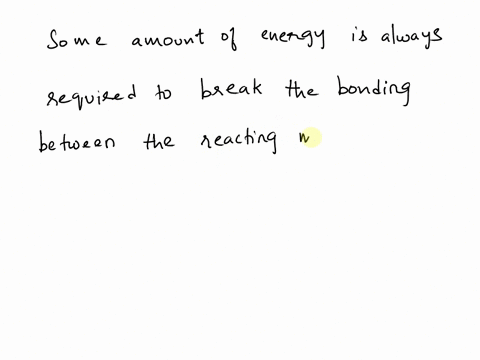 Some amount of energy is always
required to break the bonding
between the reacting